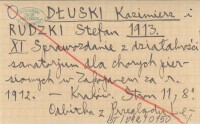 O DŁUSKI Kazimierz i
RUDZKI Stefan 1913.
XI Sprawozdanie z działalności
sanatorjum dla chorych pier-
siowych w Zakopanem za r.
1912. — Kraków. Stron 11, 8°
Odbitka z Przeglądu Le-